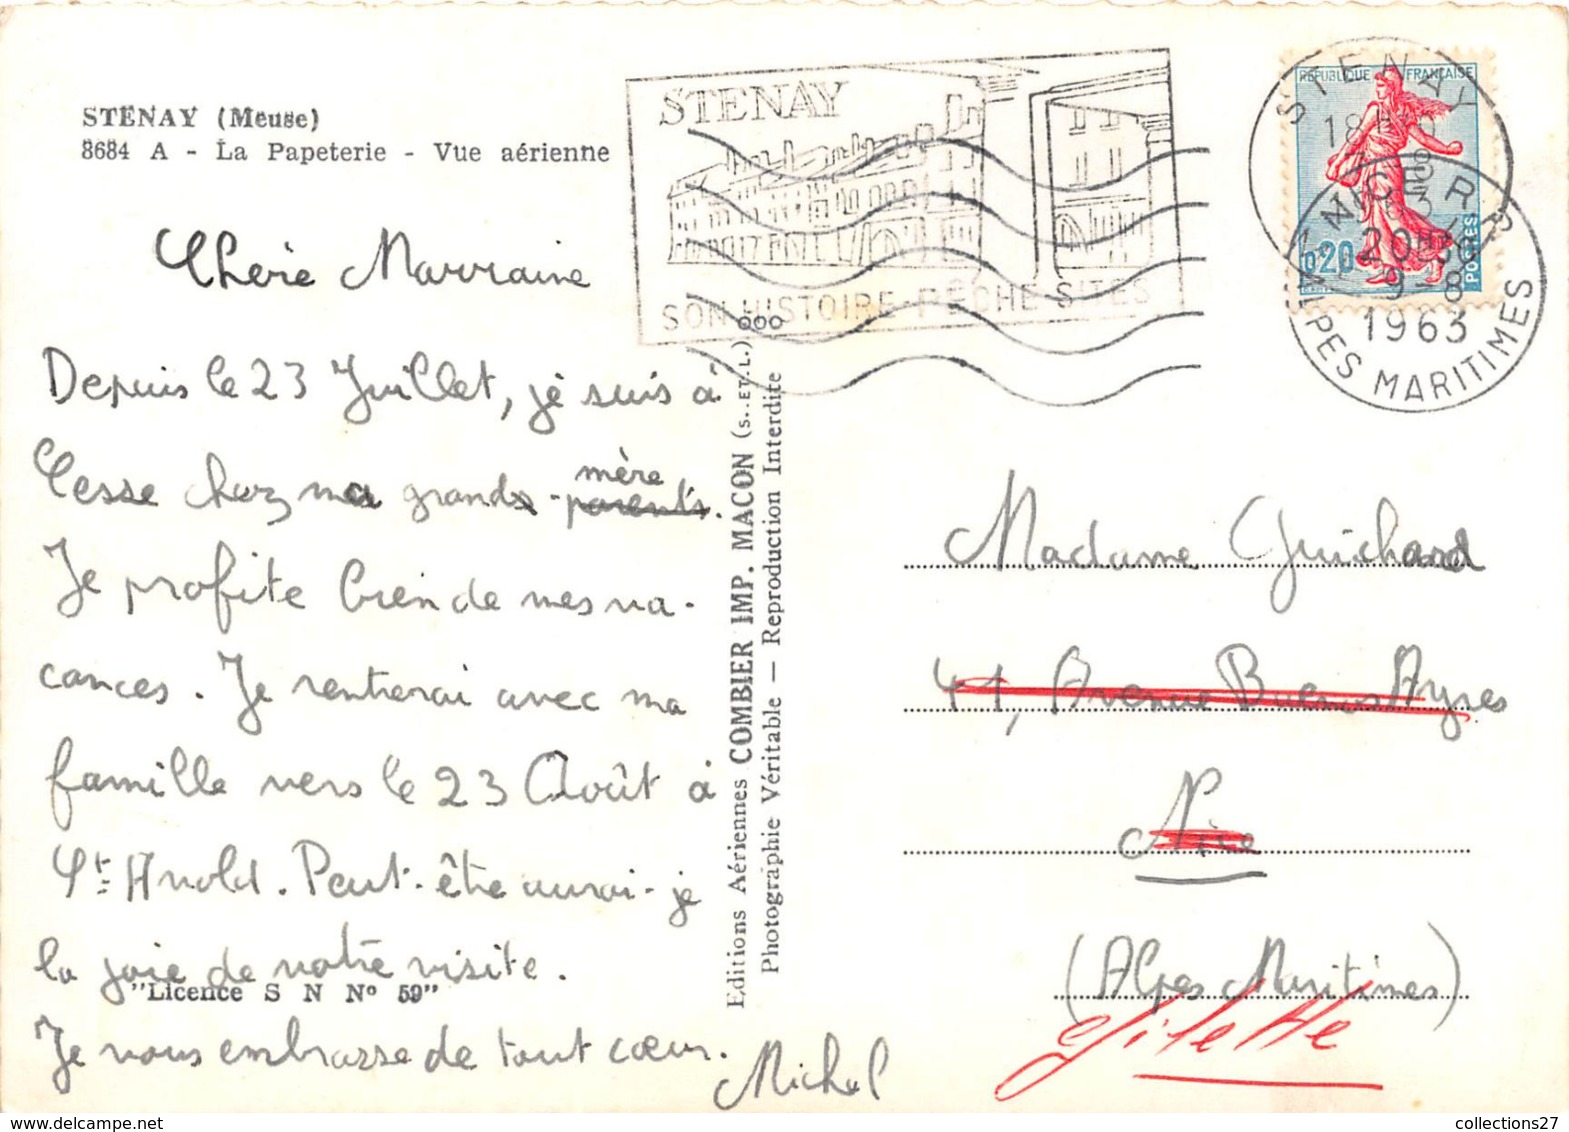 STENAY (Meuse)
8684 A - La Papeterie - Vue aérienne
Chère Marraine
Depuis le 23 Juillet, je suis à
Cesse chez ma grands - mère parents.
Je profite bien de mes va-
cances. Je rentrerai avec ma
famille vers le 23 Août à
St Arnold. Peut-être aurai-je
la joie de votre visite.
"Licence S N N° 59"
Je vous embrasse de tout cœur.
Michel
Editions Aériennes COMBIER IMP. MACON (S.-ET-L.)
Photographie Véritable — Reproduction Interdite
STENAY
SON HISTOIRE-PECHE-SITES
STENAY
RÉPUBLIQUE FRANÇAISE
0,20
POSTES
NICE R.P.
20H
9-8
1963
ALPES MARITIMES
Madame Guichard
41, Avenue Buenos Ayres
Nice
(Alpes Maritimes)
Gilette
collections27